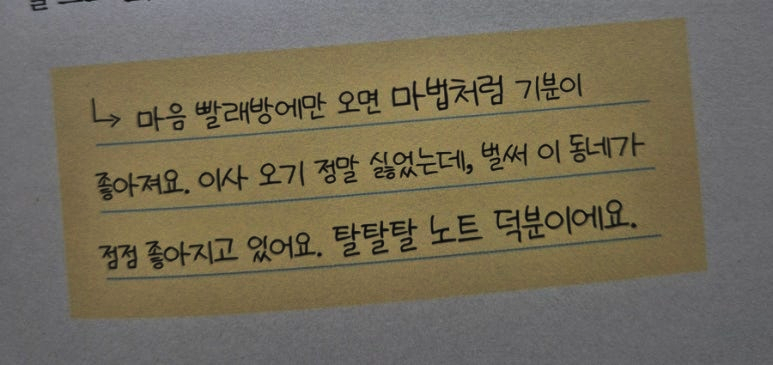 ↳ 마음 빨래방에만 오면 마법처럼 기분이
좋아져요. 이사 오기 정말 싫었는데, 벌써 이 동네가
점점 좋아지고 있어요. 탈탈탈 노트 덕분이에요.